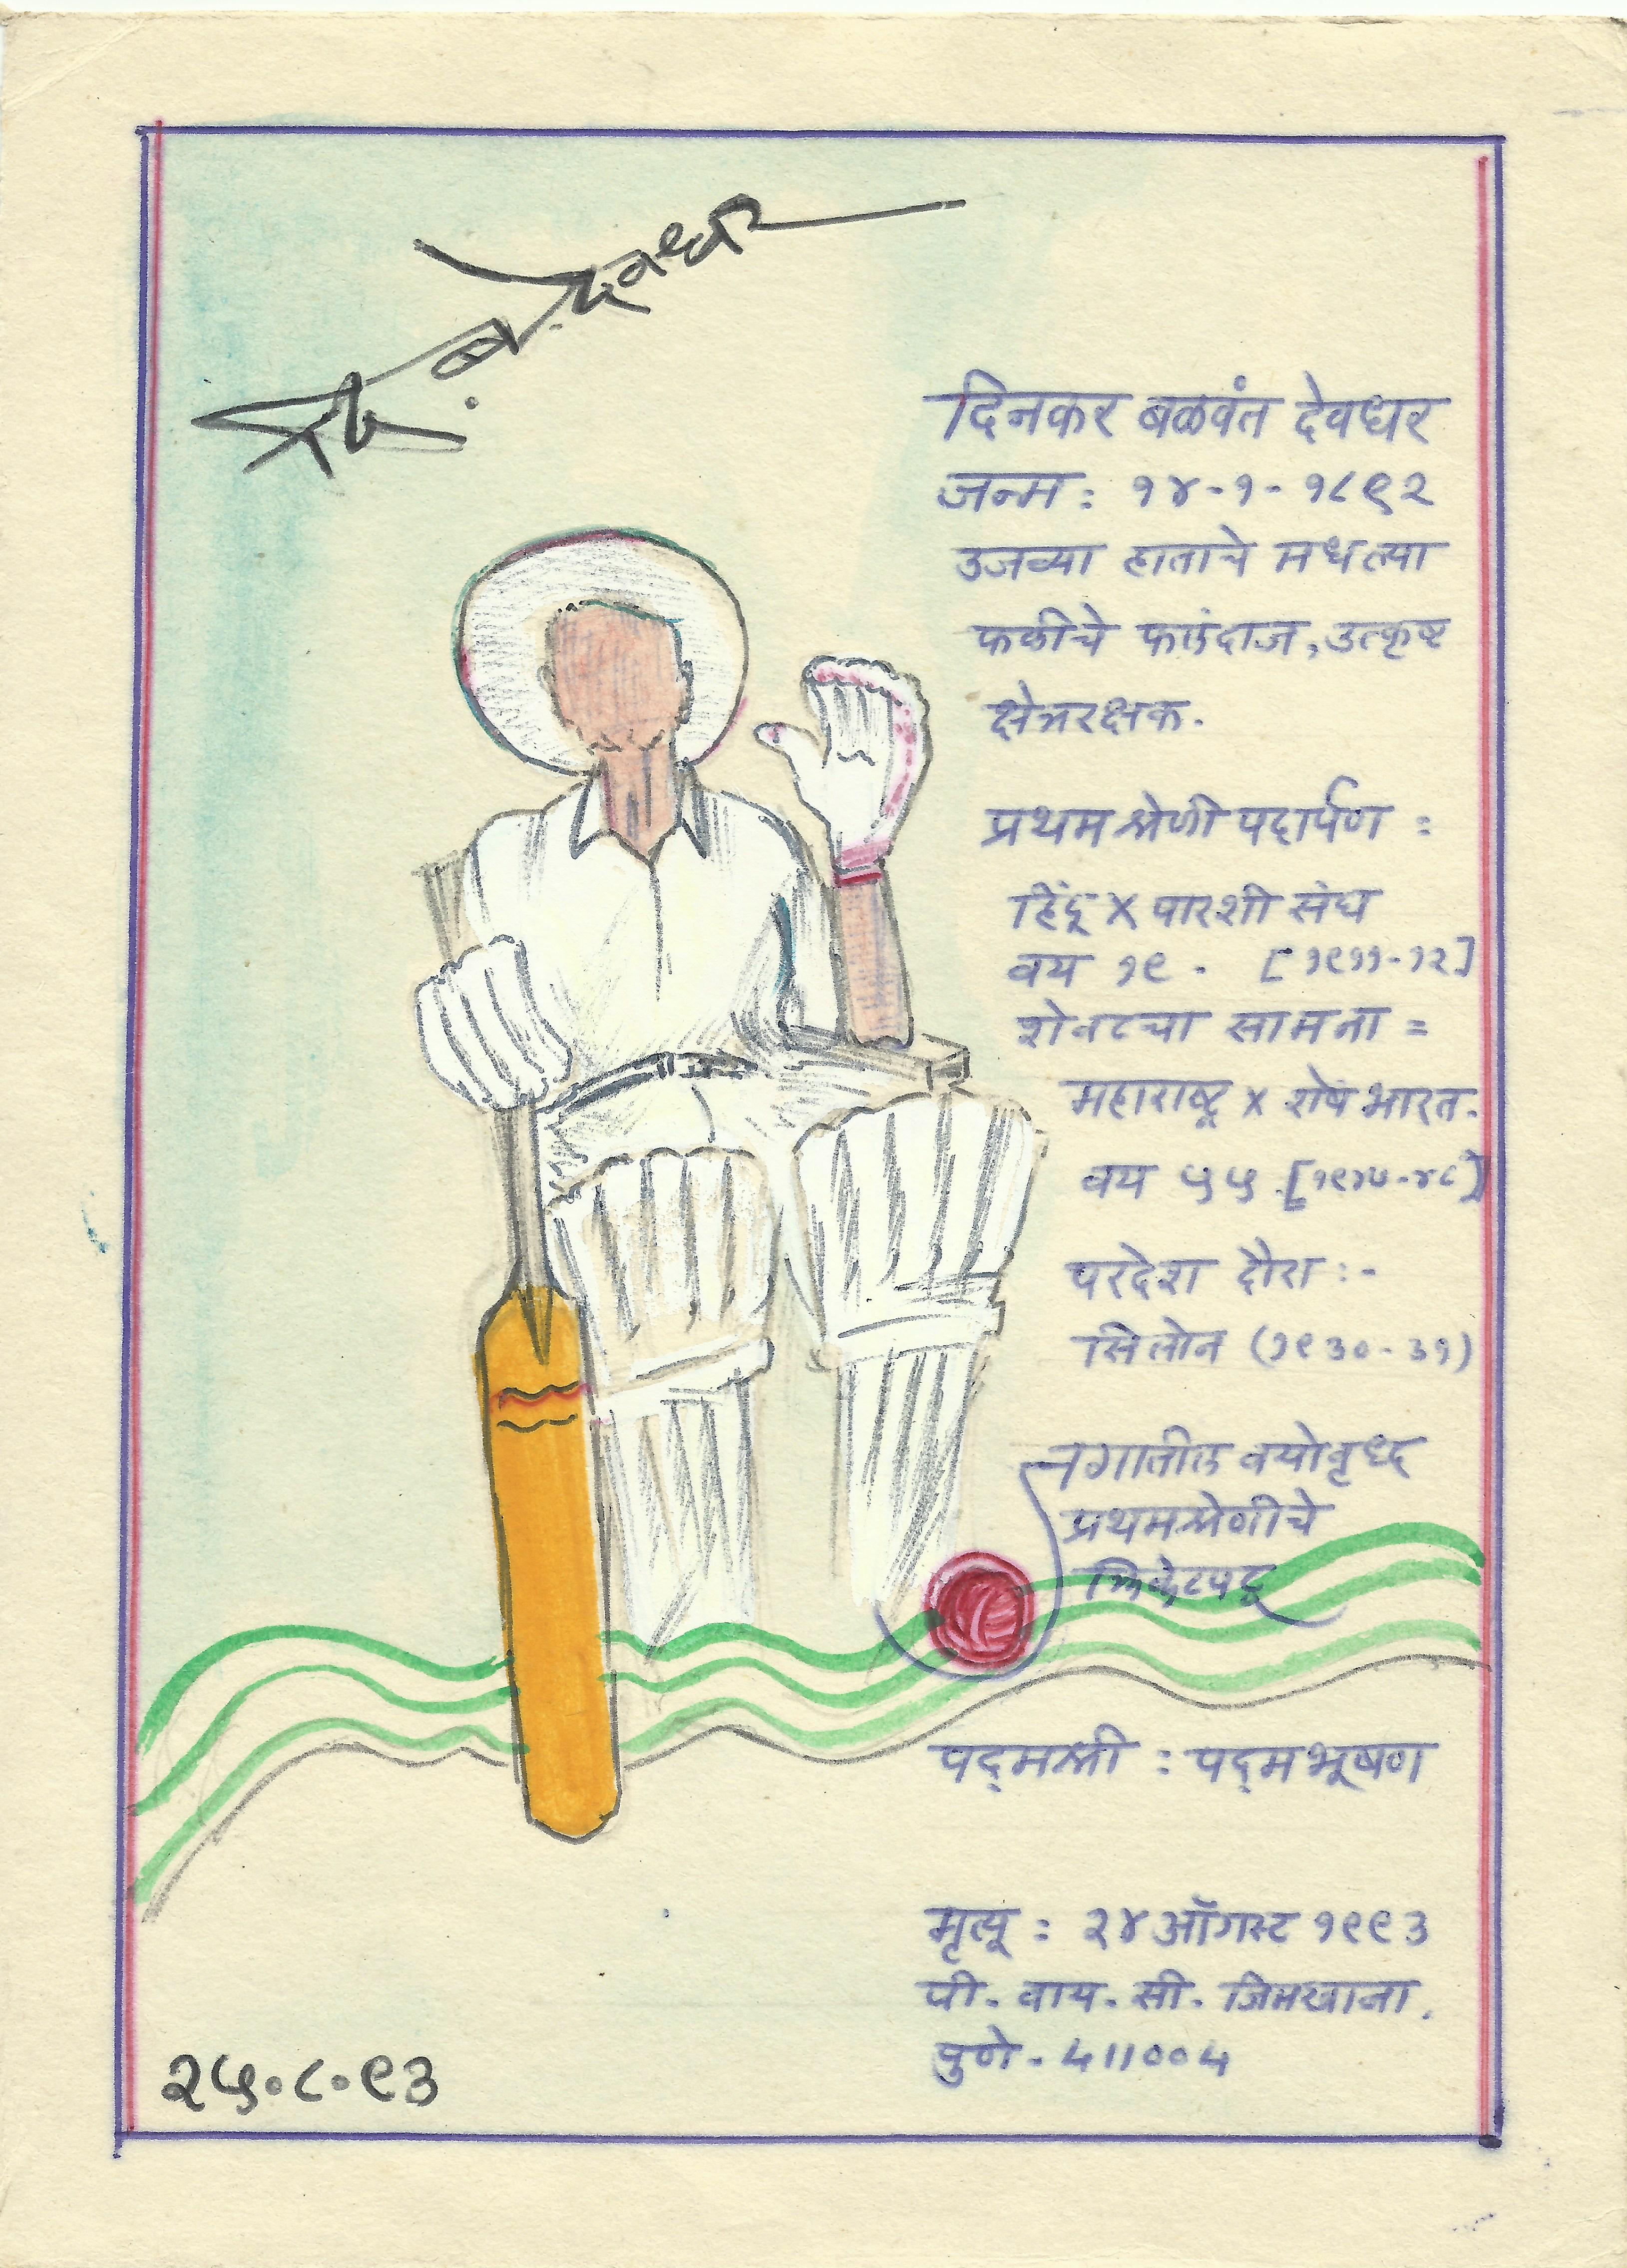 प्रा. दि. ब. देवधर
दिनकर बळवंत देवधर
जन्म : १४-१-१८९२
उजव्या हाताचे मधल्या
फळीचे फलंदाज, उत्कृष्ट
क्षेत्ररक्षक.
प्रथम श्रेणी पदार्पण :
हिंदू X पारशी संघ
वय १९. [१९११-१२]
शेवटचा सामना =
महाराष्ट्र X शेष भारत.
वय ५५ [१९४७-४८]
परदेश दौरा :-
सिलोन (१९३०-३१)
जगातील वयोवृध्द
प्रथमश्रेणीचे
क्रिकेटपटू
पद्मश्री : पद्मभूषण
मृत्यू : २४ ऑगस्ट १९९३
पी. वाय. सी. जिमखाना.
पुणे - 411004
२५.८.९३